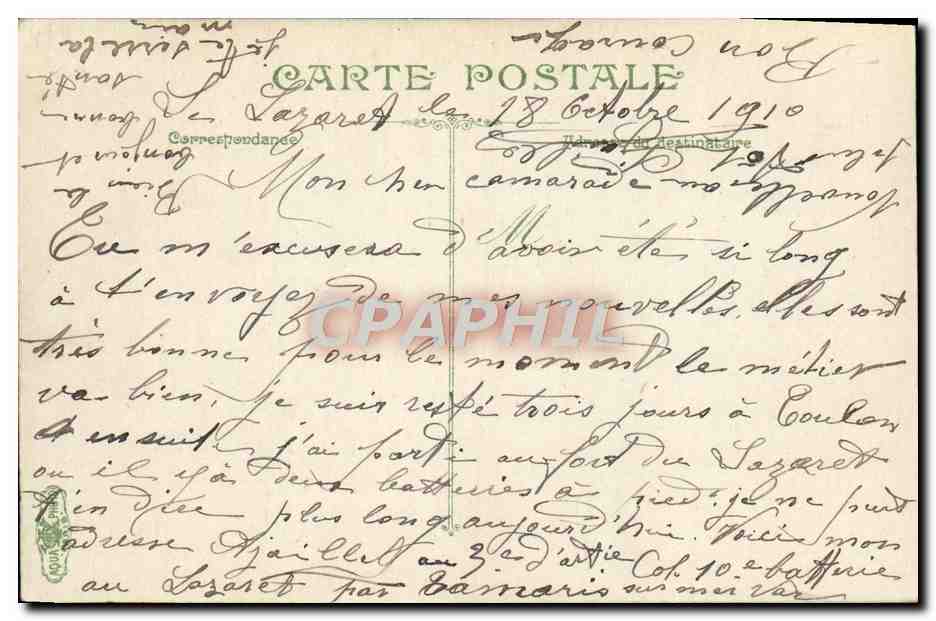 CARTE POSTALE
Le Lazaret le 28 Octobre 1910
Correspondance
Adresse du destinataire
Mon cher camarade
Tu m'excusera d'avoir étés si long
à t'envoyez de mes nouvelles, elles sont
très bonne pour le moment le métier
va bien, je suis resté trois jours à Toulon
et ensuite j'ai parti au fort du Lazaret
ou il y à deux batteries à pied. je ne puis
t'en dire plus long aujourd'hui. Voici mon
adresse Ajaillet au 3e d'artie Col. 10e batterie
au Lazaret par Tamaris sur mer Var
Bien le
bonjour et
bonne
santé
je te serre la
main
Bon
courage
CPAPHIL
AQUA PHO